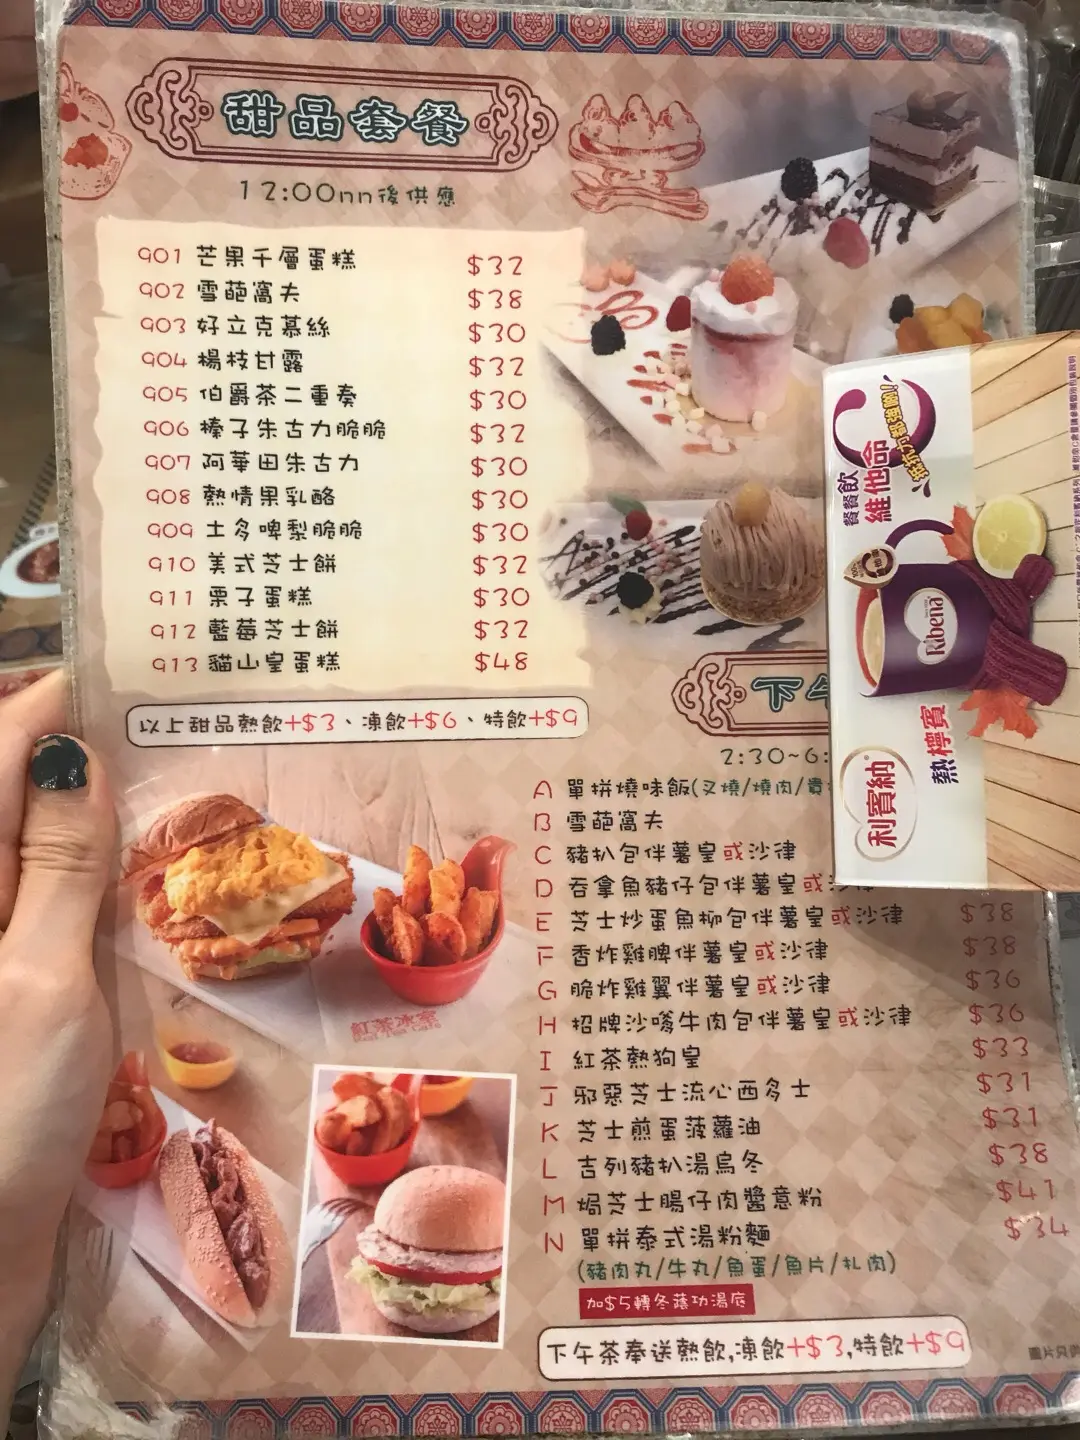 甜品套餐
12:00nn後供應
901 芒果千層蛋糕 $32
902 雪葩窩夫 $38
903 好立克慕絲 $30
904 楊枝甘露 $32
905 伯爵茶二重奏 $30
906 榛子朱古力脆脆 $32
907 阿華田朱古力 $30
908 熱情果乳酪 $30
909 士多啤梨脆脆 $30
910 美式芝士餅 $32
911 栗子蛋糕 $30
912 藍莓芝士餅 $32
913 貓山皇蛋糕 $48
以上甜品熱飲+$3、凍飲+$6、特飲+$9
餐餐飲
維他命C
抵抗力都強啲!
Ribena
利賓納
熱檸賓
下午
2:30~6:
A 單拼燒味飯(叉燒/燒肉/貴
B 雪葩窩夫
C 豬扒包伴薯皇或沙律
D 吞拿魚豬仔包伴薯皇或沙律
E 芝士炒蛋魚柳包伴薯皇或沙律 $38
F 香炸雞脾伴薯皇或沙律 $38
G 脆炸雞翼伴薯皇或沙律 $36
H 招牌沙嗲牛肉包伴薯皇或沙律 $36
I 紅茶熱狗皇 $33
J 邪惡芝士流心西多士 $31
K 芝士煎蛋菠蘿油 $31
L 吉列豬扒湯烏冬 $38
M 焗芝士腸仔肉醬意粉 $41
N 單拼泰式湯粉麵 $34
(豬肉丸/牛丸/魚蛋/魚片/扎肉)
加$5轉冬蔭功湯底
下午茶奉送熱飲,凍飲+$3,特飲+$9
紅茶冰室